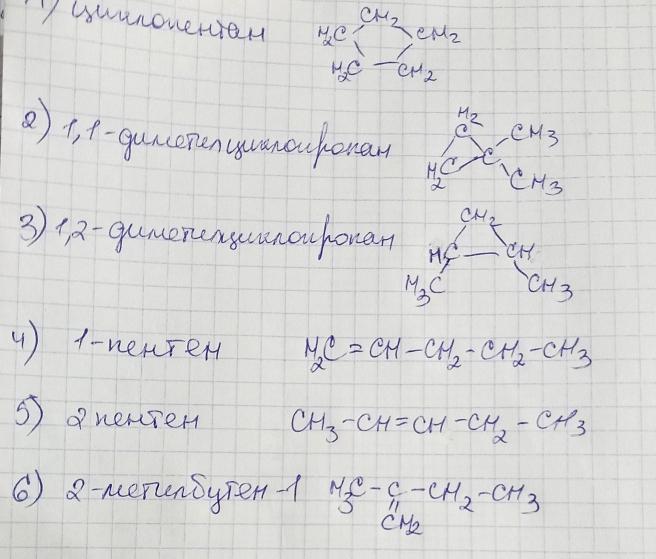 1) циклопентан CH2 H2C CH2 H2C – CH2
2) 1,1-диметилциклопропан H2 C CH3 H2C C CH3
3) 1,2-диметилциклопропан CH2 HC – CH H3C CH3
4) 1-пентен H2C=CH-CH2-CH2-CH3
5) 2 пентен CH3-CH=CH-CH2-CH3
6) 2-метилбутен-1 H3C-C-CH2-CH3
CH2